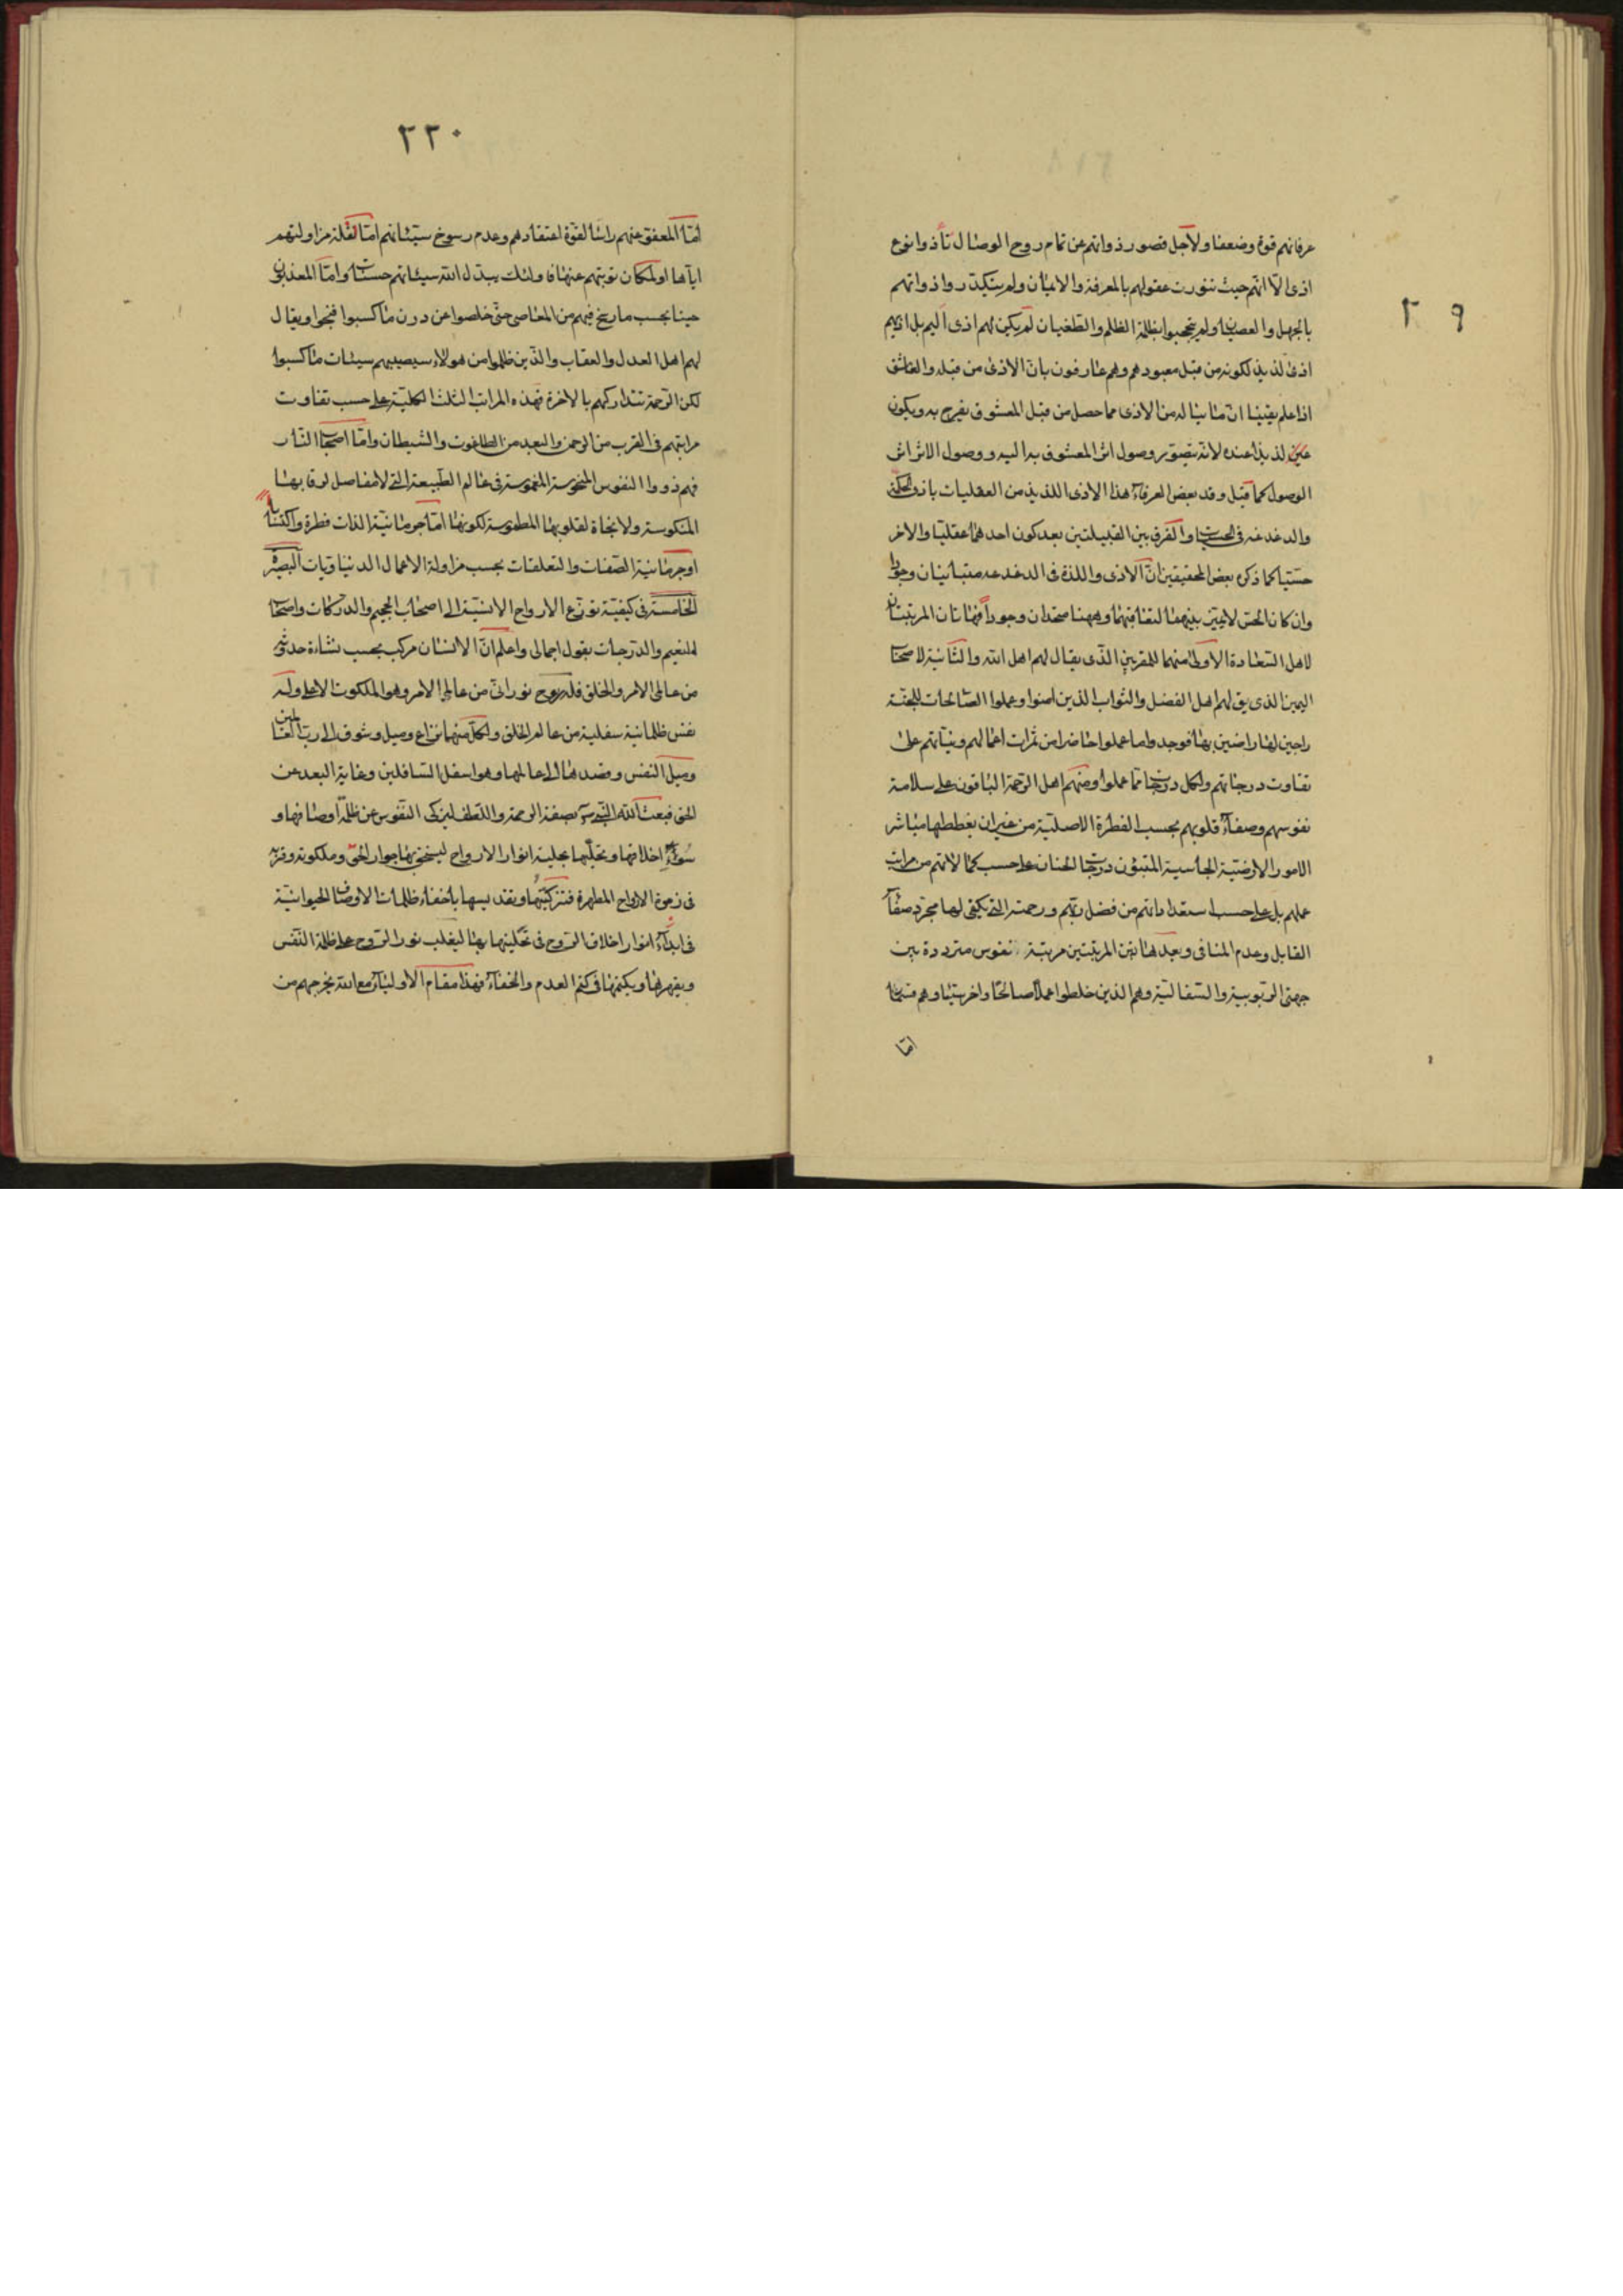 عرفانهم قوة وضعفا ولاجل قصور ذواتهم عن تمام روح الوصال تأذوا نوع
اذى الا انهم حيث تنورت عقولهم بالمعرفة والايمان ولم يتكدر واذواتهم
بالجهل والعصيان ولم يحتجبوا بظلمة الظلم والطغيان لم يكن لهم اذى اليم بل اذيهم
اذى لذيذ لكونه من قبل معبودهم وهم عارفون بان الاذى من قبله والعاشق
اذا علم يقينا ان ما يناله من الاذى مما حصل من قبل المعشوق يفرح به ويكون
عين لذيذ اعنده لانه يتصور وصول اثر المعشوق به اليه ووصول الاثر اثر
الوصول كما قيل وقد بعض العرفاء هذا الاذى اللذيذ من العقليات باذى الحكة
والدغدغه فى الحسيات والفرق بين القبيلتين بعد كون احدهما عقليا والاخر
حسيا كما ذكره بعض المحققين ان الاذى واللذة فى الدغدغه متباينان وجودا
وان كان الحس لا يميز بينهما لتعاقبهما وههنا متحدان وجودا فهاتان المرتبتان
لاهل السعادة الاولى منهما للمقربين الذى يقال لهم اهل الله والثانية لاصحاب
اليمين الذى يق لهم اهل الفضل والثواب الذين امنوا وعملوا الصالحات للجنة
راجين لها راضين بها فوجدوا ما عملوا حاضرا من ثمرات اعمالهم ونياتهم على
تفاوت درجاتهم ولكل درجات مما عملوا ومنهم اهل الرحمة الباقون على سلامة
نفوسهم وصفاء قلوبهم بحسب الفطرة الاصلية من غير ان مباشر
الامور الارضية المتبوئون درجات الجنان على حسب كمالاتهم من مراتب
عملهم بل على حسب استعداداتهم من فضل ربهم ورحمته التى يكفى لها مجرد صفاء
القابل وعدم المنافى وبعد هاتين المرتبتين مرتبة نفوس مترددة بين
جهتى الربوبية والسفالية وهم الذين خلطوا عملا صالحا واخر سيئا وهم قسمان
اما
٢٩
٢٢٠
اما المعفو عنهم راسا لقوة اعتقادهم وعدم رسوخ سيئاتهم اما لقلة مزاولتهم
اياها او لمكان توبتهم عنها فاولئك يبدل الله سيئاتهم حسنات واما المعذبون
حينا بحسب ما رسخ فيهم من المعاصى حتى خلصوا عن درن ما كسبوا فنجوا ويقال
لهم اهل العدل والعقاب والذين ظلموا من هولاء سيصيبهم سيئات ما كسبوا
لكن الرحمة تتداركهم بالاخرة فهذه المراتب الثلث الكلية على حسب تفاوت
مراتبهم فى القرب من الرحمن والبعد من الطاغوت والشيطان واما اصحاب النار
فهم ذووا النفوس المنحوسة المغموسة فى عالم الطبيعة التى لا مفاصل لرقابها
المنكوسة ولا نجاة لقلوبها المطموسة لكونها اما جرمانية الذات فطرة واكتسابا
او جرمانية الصفات والتعلقات بحسب مزاولة الاعمال الدنياويات البصيرة
الخامسة فى كيفية توزع الارواح الانسية الى اصحاب الجحيم والدركات واصحاب
النعيم والدرجات بقول اجمالى واعلم ان الانسان مركب بحسب نشاءة حدثه
من عالمى الامر والخلق فله روح نورانى من عالم الامر وهو الملكوت الاعلى وله
نفس ظلمانية سفلية من عالم الخلق ولكل منهما نزاع وميل وشوق الى رب العالمين
وميل النفس وقصدها الى عالمها وهو اسفل السافلين وغاية البعد عن
الحق فبعث الله النبيين بصفة الرحمة واللطف ليزكى النفوس عن ظلمة اوصافها و
سوء اخلاقها وتحليها بحلية انوار الارواح ليستحق بها جوار الحق وملكوته وقربه
فى زمرة الارواح المطهرة فتزكيتها وتقديسها باخفاء ظلمات الاوصاف الحيوانية
فى ابداء انوار اخلاق الروح فى تحليتها بها ليغلب نور الروح على ظلمة النفس
ويقهرها ويكتمها فى كتم العدم والخفاء فهذا مقام الاولياء مع الله يخرجهم من